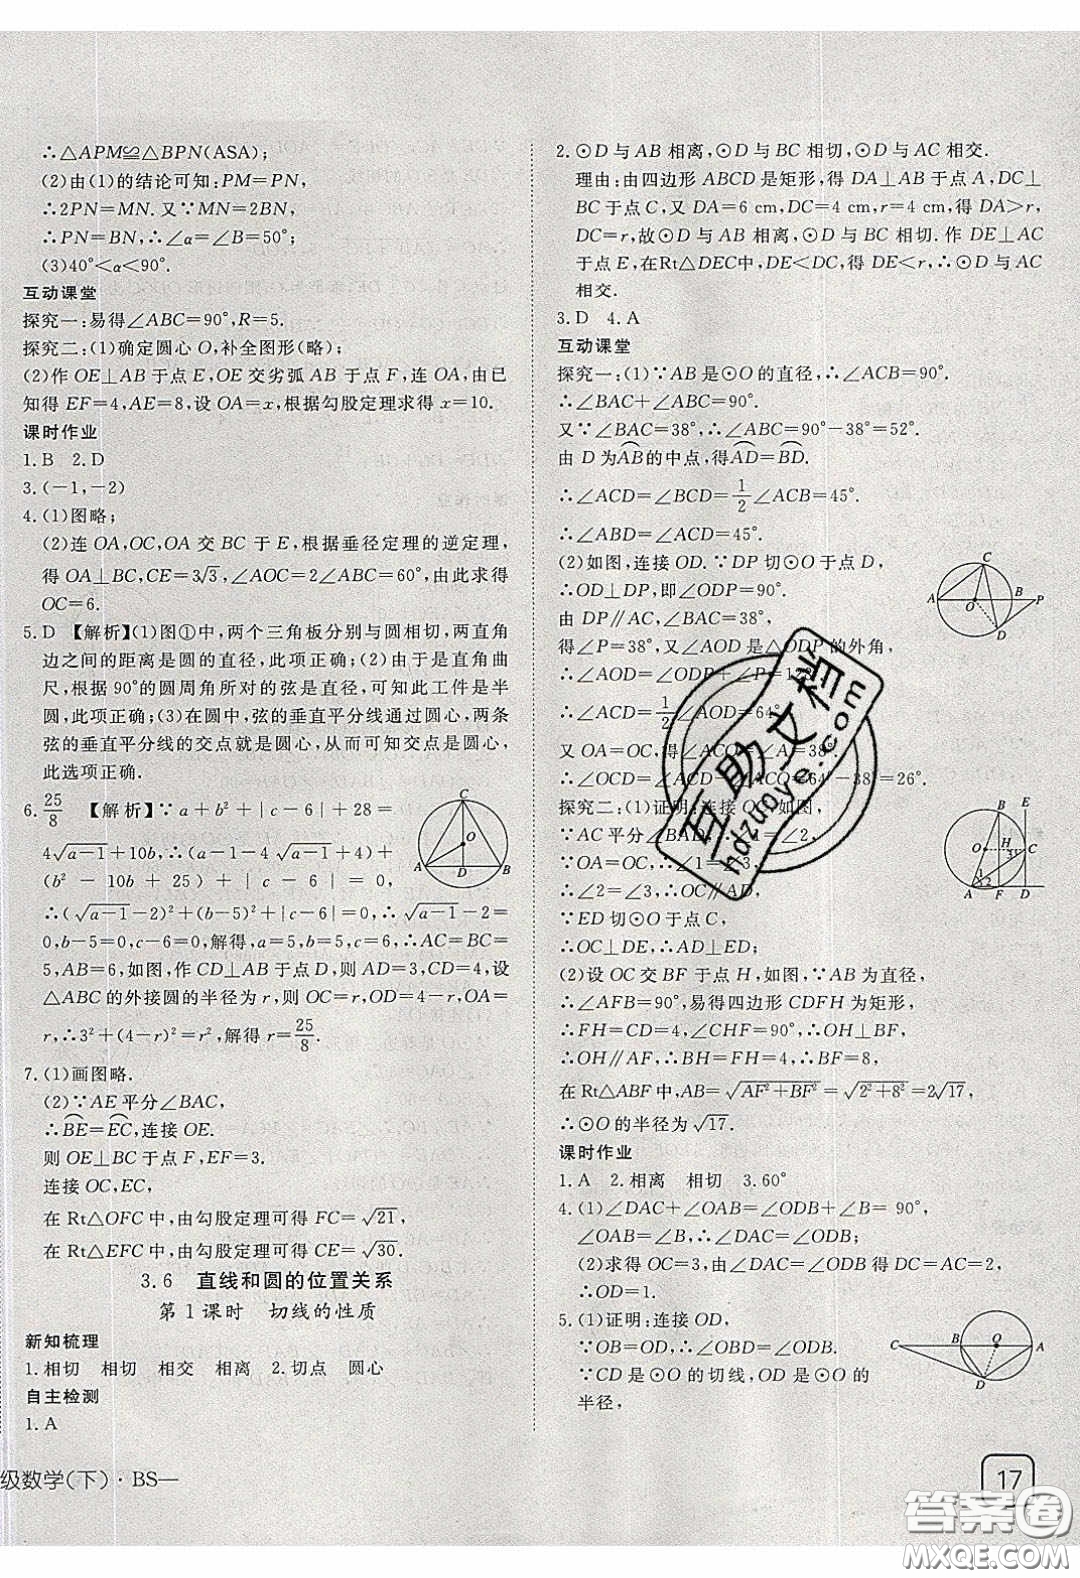 ∴△APM≌△BPN(ASA);
(2)由(1)的结论可知:PM=PN,
∴2PN=MN.又∵MN=2BN,
∴PN=BN,∴∠α=∠B=50°;
(3)40°<α<90°.
互动课堂
探究一:易得∠ABC=90°,R=5.
探究二:(1)确定圆心O,补全图形(略);
(2)作OE⊥AB于点E,OE交劣弧AB于点F,连OA,由已
知得EF=4,AE=8,设OA=x,根据勾股定理求得x=10.
课时作业
1.B 2.D
3.(-1,-2)
4.(1)图略;
(2)连OA,OC,OA交BC于E,根据垂径定理的逆定理,
得OA⊥BC,CE=3√3,∠AOC=2∠ABC=60°,由此求得
OC=6.
5.D 【解析】(1)图①中,两个三角板分别与圆相切,两直角
边之间的距离是圆的直径,此项正确;(2)由于是两把曲
尺,根据90°的圆周角所对的弦是直径,可知此工件是半
圆,此项正确;(3)在圆中,弦的垂直平分线通过圆心,两条
弦的垂直平分线的交点就是圆心,从而可知交点是圆心,
此选项正确.
6.25/8 【解析】∵a+b²+|c-6|+28=
4√(a-1)+10b,∴(a-1-4√(a-1)+4)+
(b²-10b+25)+|c-6|=0,
∴(√(a-1)-2)²+(b-5)²+|c-6|=0,∴√(a-1)-2=
0,b-5=0,c-6=0,解得,a=5,b=5,c=6,∴AC=BC=
5,AB=6,如图,作CD⊥AB于点D,则AD=3,CD=4,设
△ABC的外接圆的半径为r,则OC=r,OD=4-r,OA=
r,∴3²+(4-r)²=r²,解得r=25/8.
7.(1)画图略.
(2)∵AE平分∠BAC,
∴BE=EC,连接OE.
则OE⊥BC于点F,EF=3.
连接OC,EC,
在Rt△OFC中,由勾股定理可得FC=√21,
在Rt△EFC中,由勾股定理可得CE=√30.
3.6 直线和圆的位置关系
第1课时 切线的性质
新知梳理
1.相切 相切 相交 相离 2.切点 圆心
自主检测
1.A
级数学(下)·BS—
2.⊙D与AB相离,⊙D与BC相切,⊙D与AC相交.
理由:由四边形ABCD是矩形,得DA⊥AB于点A,DC⊥
BC于点C,又DA=6 cm,DC=4 cm,r=4 cm,得DA>r,
DC=r,故⊙D与AB相离,⊙D与BC相切.作DE⊥AC
于点E,在Rt△DEC中,DE<DC,得DE<r,∴⊙D与AC
相交.
3.D 4.A
互动课堂
探究一:(1)∵AB是⊙O的直径,∴∠ACB=90°.
∴∠BAC+∠ABC=90°.
又∵∠BAC=38°,∴∠ABC=90°-38°=52°.
由D为AB的中点,得AD=BD.
∴∠ACD=∠BCD=1/2∠ACB=45°.
∴∠ABD=∠ACD=45°.
(2)如图,连接OD.∵DP切⊙O于点D,
∴OD⊥DP,即∠ODP=90°.
由DP∥AC,∠BAC=38°,
得∠P=38°.又∠AOD是△ODP的外角,
∴∠AOD=∠ODP+∠P=128°.
∴∠ACD=1/2∠AOD=64°.
又OA=OC,得∠ACO=∠A=38°.
∴∠OCD=∠ACD-∠ACO=64°-38°=26°.
探究二:(1)证明:连接OC,如图,
∵AC平分∠BAD,∴∠1=∠2,
∵OA=OC,∴∠1=∠3,
∴∠2=∠3,∴OC∥AD,
∵ED切⊙O于点C,
∴OC⊥DE,∴AD⊥ED;
(2)设OC交BF于点H,如图,∵AB为直径,
∴∠AFB=90°,易得四边形CDFH为矩形,
∴FH=CD=4,∠CHF=90°,∴OH⊥BF,
∴OH∥AF,∴BH=FH=4,∴BF=8,
在Rt△ABF中,AB=√(AF²+BF²)=√(2²+8²)=2√17,
∴⊙O的半径为√17.
课时作业
1.A 2.相离 相切 3.60°
4.(1)∠DAC+∠OAB=∠OBA+∠ODB=90°,
∠OAB=∠OBA,∴∠DAC=∠ODB;
(2)求得OC=3,由∠DAC=∠ODA得DC=AC=2,
∴OD=1.
5.(1)证明:连接OD,
∵OB=OD,∴∠OBD=∠ODB.
∵CD是⊙O的切线,OD是⊙O的
半径,
17
互助文档
hdzuoye.com
答案圈
MXQE.COM